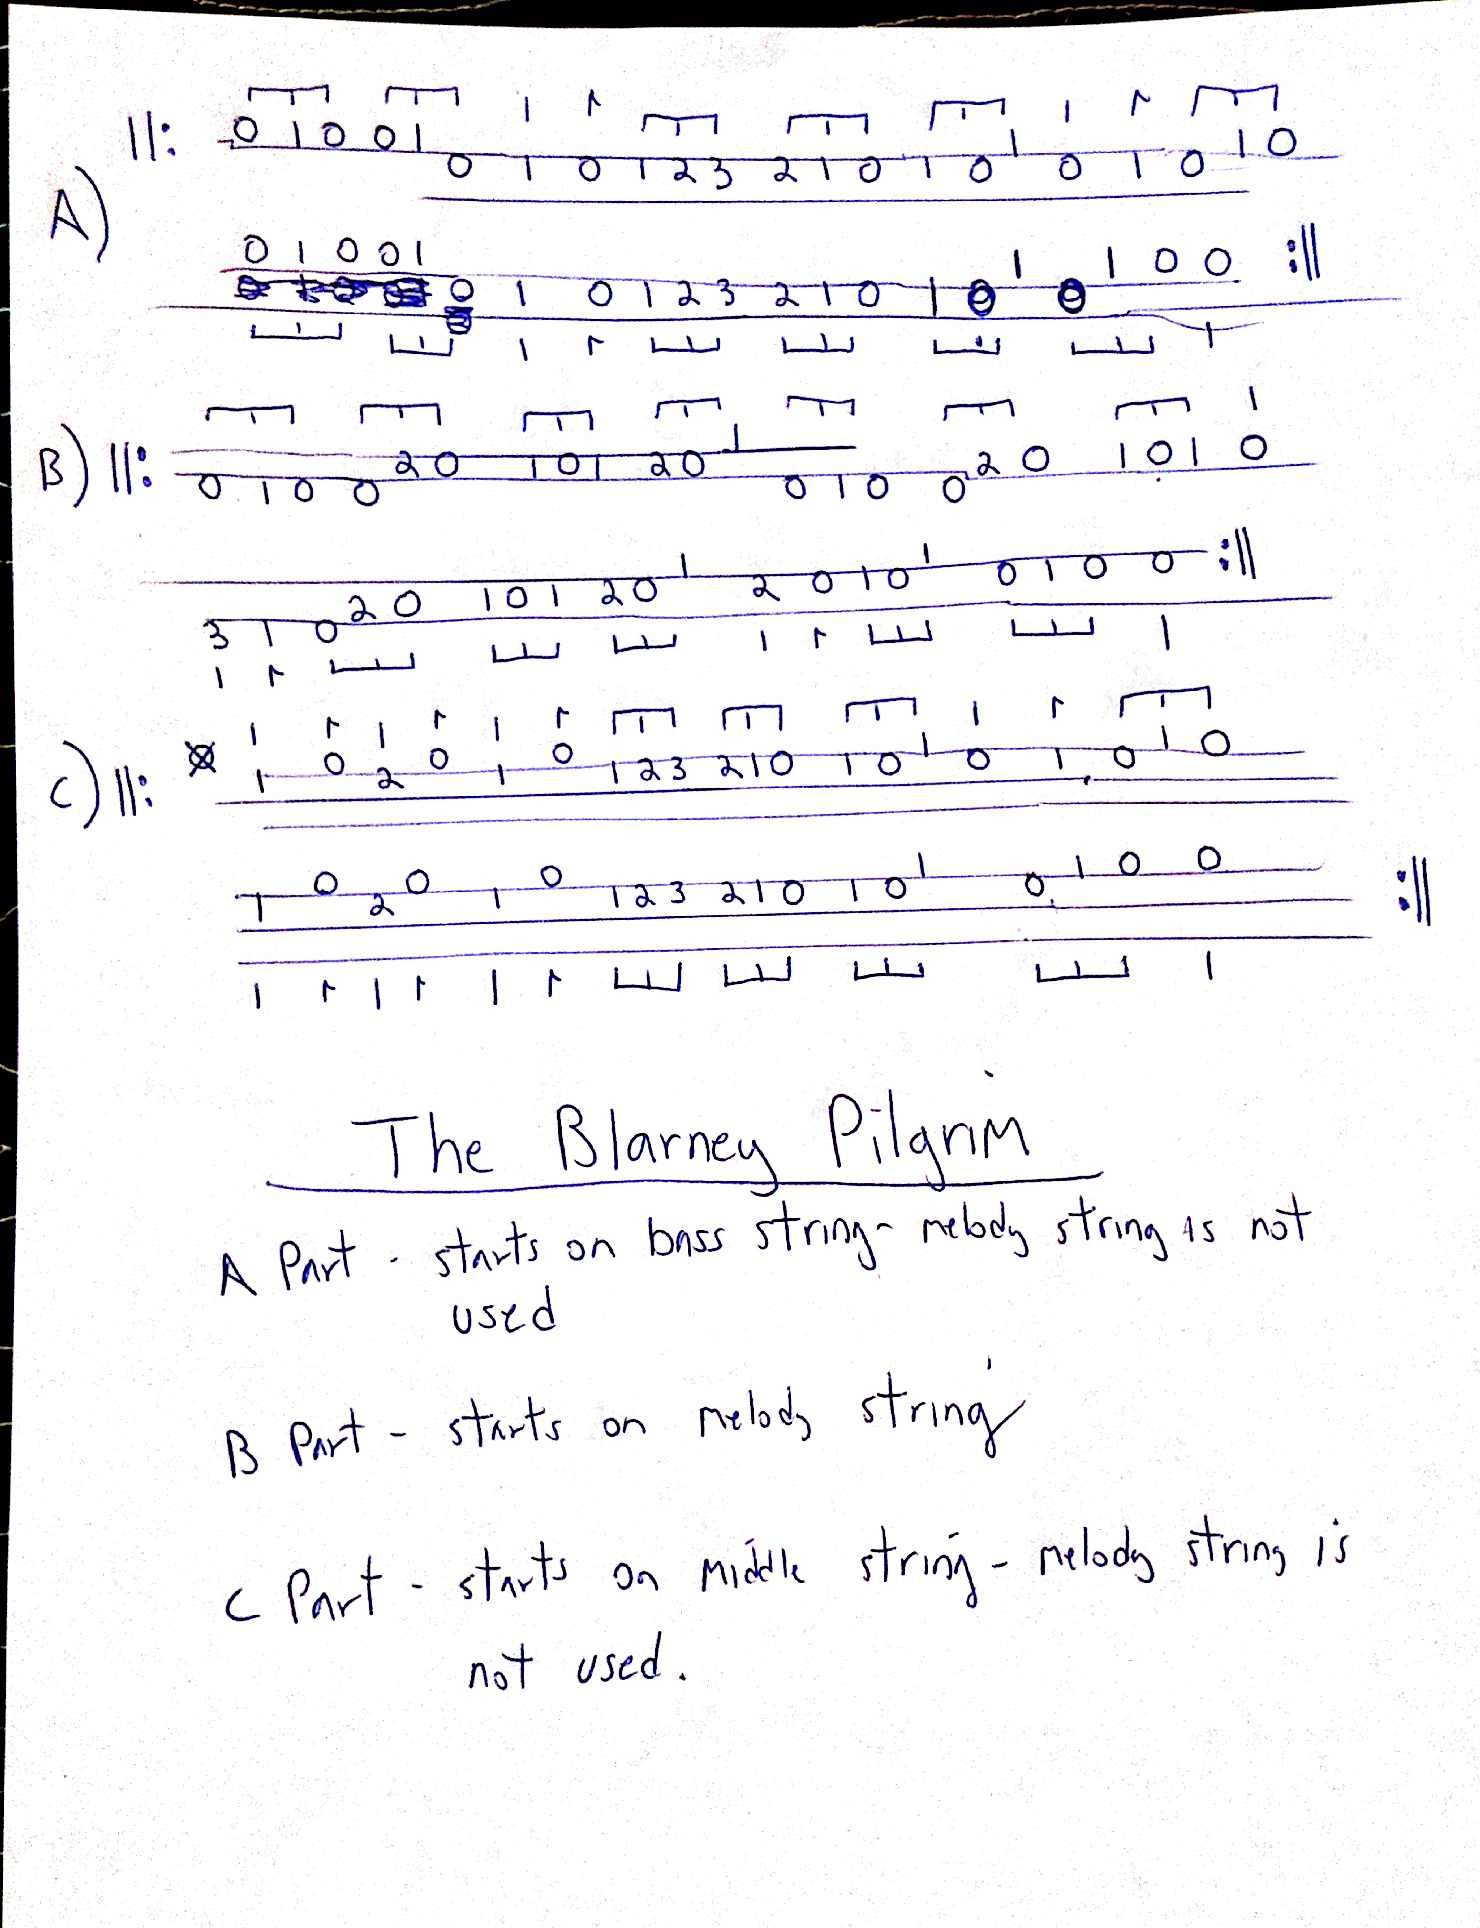 A) ||: 0 1 0 0 1 0 1 0 1 2 3 2 1 0 1 0 1 0 1 0 1 0
0 1 0 0 1 0 1 0 1 2 3 2 1 0 1 0 1 0 1 0 0 :||
B) ||: 0 1 0 0 2 0 1 0 1 2 0 1 0 1 0 0 2 0 1 0 1 0
3 1 0 2 0 1 0 1 2 0 1 2 0 1 0 1 0 1 0 0 :||
C) ||: 1 0 2 0 1 0 1 2 3 2 1 0 1 0 1 0 1 0 1 0
1 0 2 0 1 0 1 2 3 2 1 0 1 0 1 0 1 0 0 :||
The Blarney Pilgrim
A Part - starts on bass string - melody string is not
used
B Part - starts on melody string
C Part - starts on middle string - melody string is
not used.